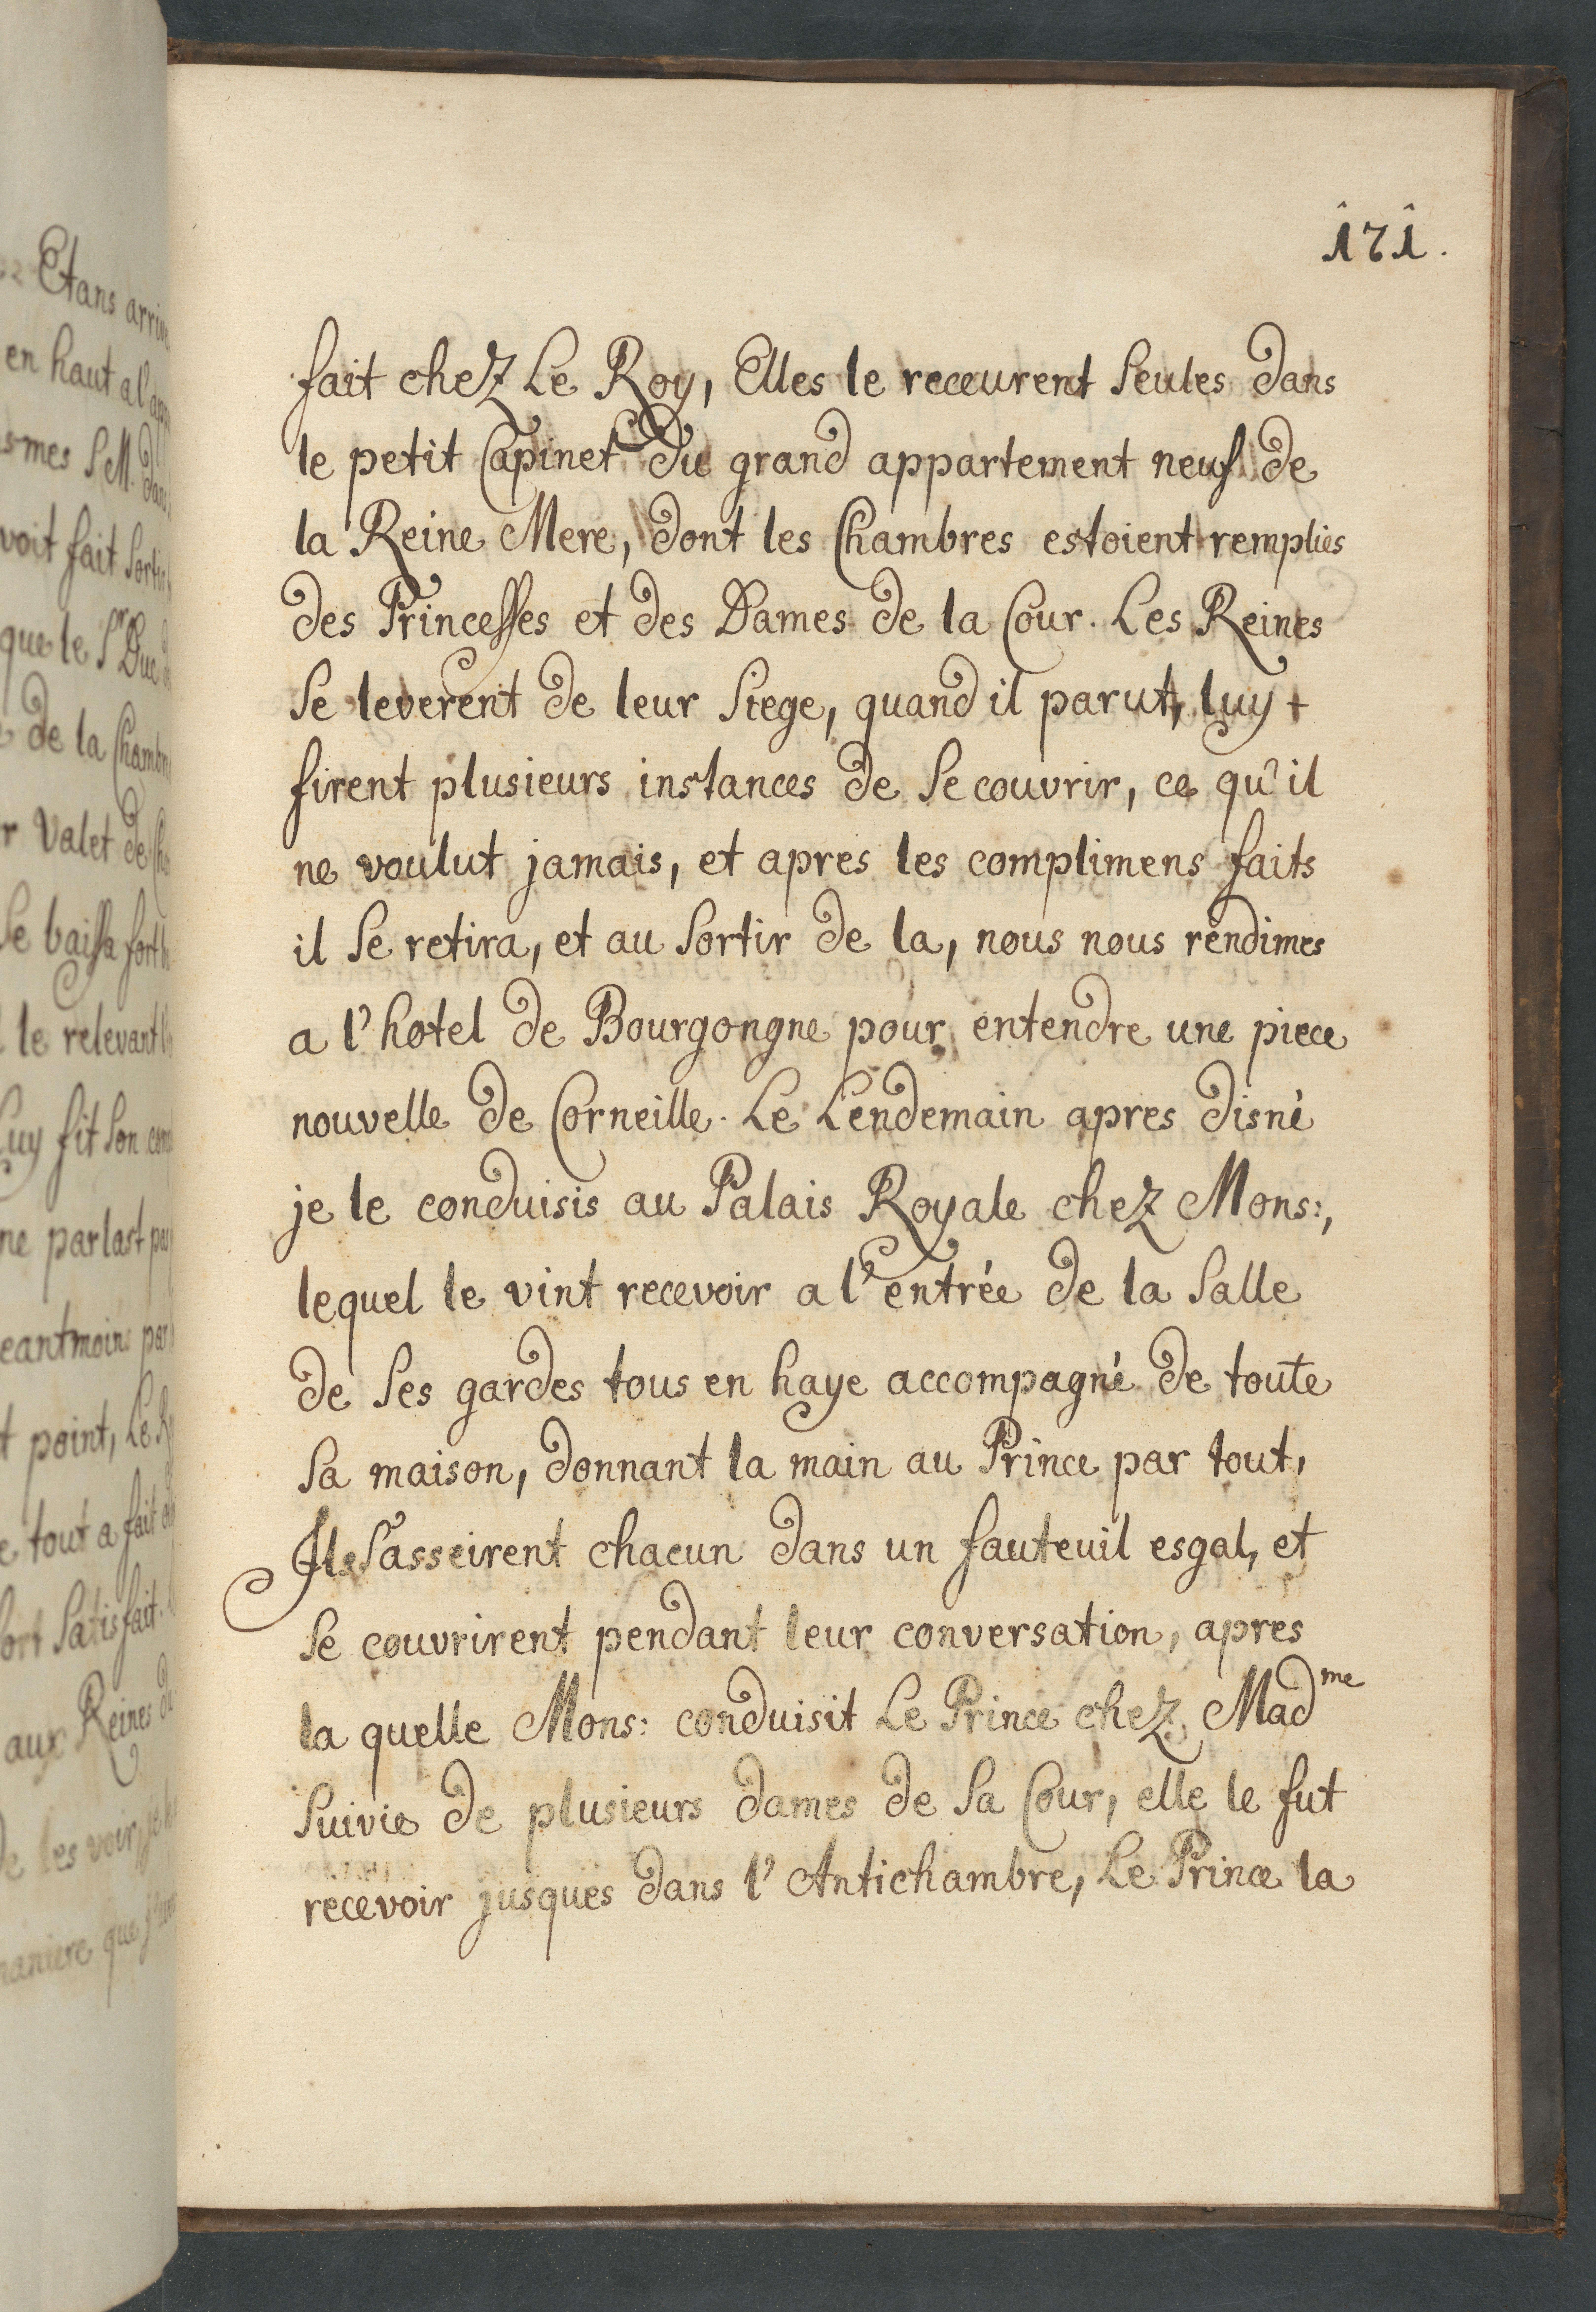 171.
fait chez Le Roy, Elles le receurent Seules dans
le petit Capinet du grand appartement neuf de
la Reine Mere, dont les Chambres estoient remplies
des Princesses et des Dames de la Cour. Les Reines
Se leverent de leur Siege, quand il parut, luy +
firent plusieurs instances de Se couvrir, ce qu'il
ne voulut jamais, et apres les complimens faits
il Se retira, et au Sortir de la, nous nous rendimes
a l'hotel de Bourgongne pour entendre une piece
nouvelle de Corneille. Le Lendemain apres disné
je le conduisis au Palais Royale chez Mons:,
lequel le vint recevoir a l'entrée de la Salle
de Ses gardes tous en haye accompagné de toute
Sa maison, donnant la main au Prince par tout,
Ils S'asseirent chacun dans un fauteuil esgal, et
Se couvrirent pendant leur conversation, apres
la quelle Mons: conduisit Le Prince chez Madme
Suivie de plusieurs dames de Sa Cour, elle le fut
recevoir jusques dans l'Antichambre, Le Prince la
Etans
en haut a
que le Sr Duc
de la
Valet de
Se baissa fort
le relevant
Luy fit Son
ne parlast
point, Le
tout a fait
Satisfait.
aux Reines
les voir,